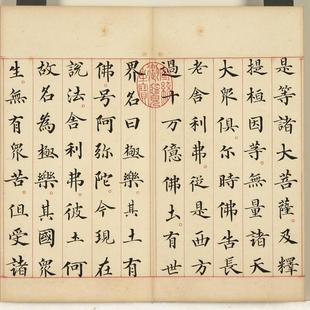 是等諸大菩薩及釋
提桓因等無量諸天
大眾俱尒時佛告長
老舍利弗從是西方
過十万億佛土有世
界名曰極樂其土有
佛号阿弥陀今現在
說法舍利弗彼土何
故名為極樂其國眾
生無有眾苦但受諸